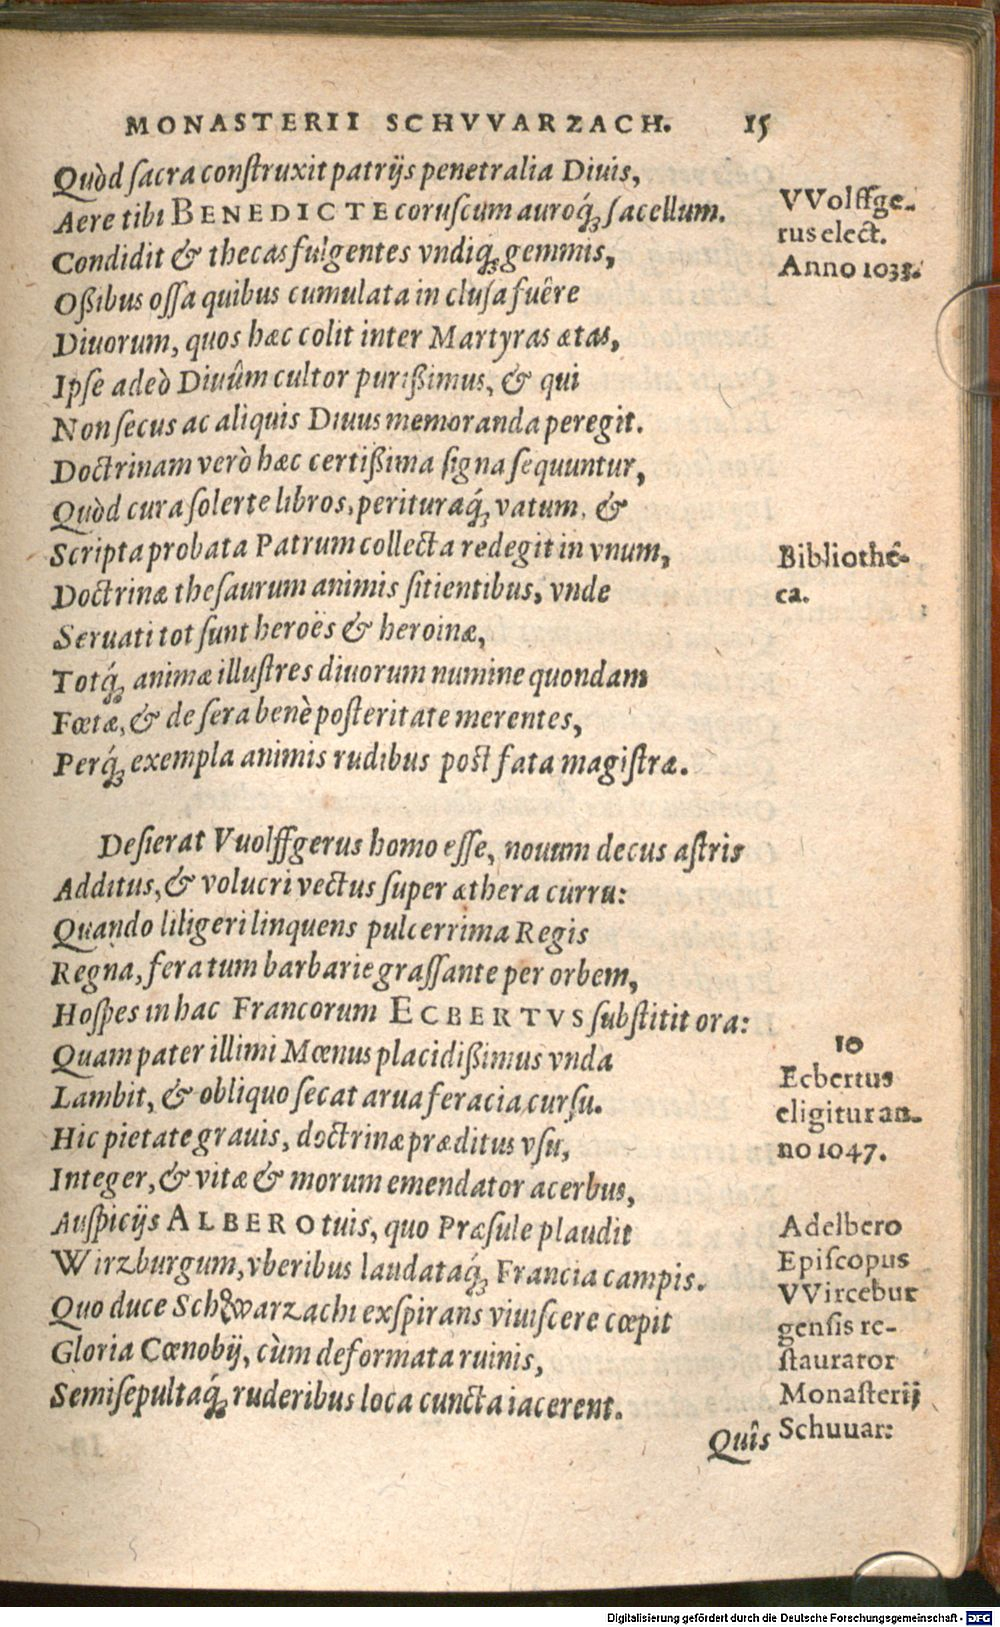 MONASTERII SCHVVARZACH. 15
Quòd sacra construxit patrijs penetralia Diuis,
Aere tibi BENEDICTE coruscum auroq́; sacellum.
Condidit & thecas fulgentes vndiq; gemmis,
Oßibus ossa quibus cumulata in clusa fuêre
Diuorum, quos hæc colit inter Martyras ætas,
Ipse adeò Diuûm cultor purißimus, & qui
Non secus ac aliquis Diuus memoranda peregit.
Doctrinam verò hæc certißima signa sequuntur,
Quòd cura solerte libros, perituraq́; vatum, &
Scripta probata Patrum collecta redegit in vnum,
Doctrinæ thesaurum animis sitientibus, vnde
Seruati tot sunt heroës & heroinæ,
Totq́; animæ illustres diuorum numine quondam
Fœtæ, & de sera benè posteritate merentes,
Perq́; exempla animis rudibus post fata magistræ.
VVolffge-
rus elect.
Anno 1033.
Bibliothê-
ca.
Desierat Vuolffgerus homo esse, nouum decus astris
Additus, & volucri vectus super æthera curru:
Quando liligeri linquens pulcerrima Regis
Regna, feratum barbarie grassante per orbem,
Hospes in hac Francorum ECBERTVS substitit ora:
Quam pater illimi Mœnus placidißimus vnda
Lambit, & obliquo secat arua feracia cursu.
Hic pietate grauis, doctrinæ præditus vsu,
Integer, & vitæ & morum emendator acerbus,
Auspicijs ALBERO tuis, quo Præsule plaudit
Wirzburgum, vberibus laudataq́; Francia campis.
Quo duce Schwarzachi exspirans viuiscere cœpit
Gloria Cœnobij, cùm deformata ruinis,
Semisepultaq́; ruderibus loca cuncta iacerent.
10
Ecbertus
eligitur an-
no 1047.
Adelbero
Episcopus
VVircebur
gensis re-
staurator
Monasterij
Schuuar:
Quîs
Digitalisierung gefördert durch die Deutsche Forschungsgemeinschaft - DFG